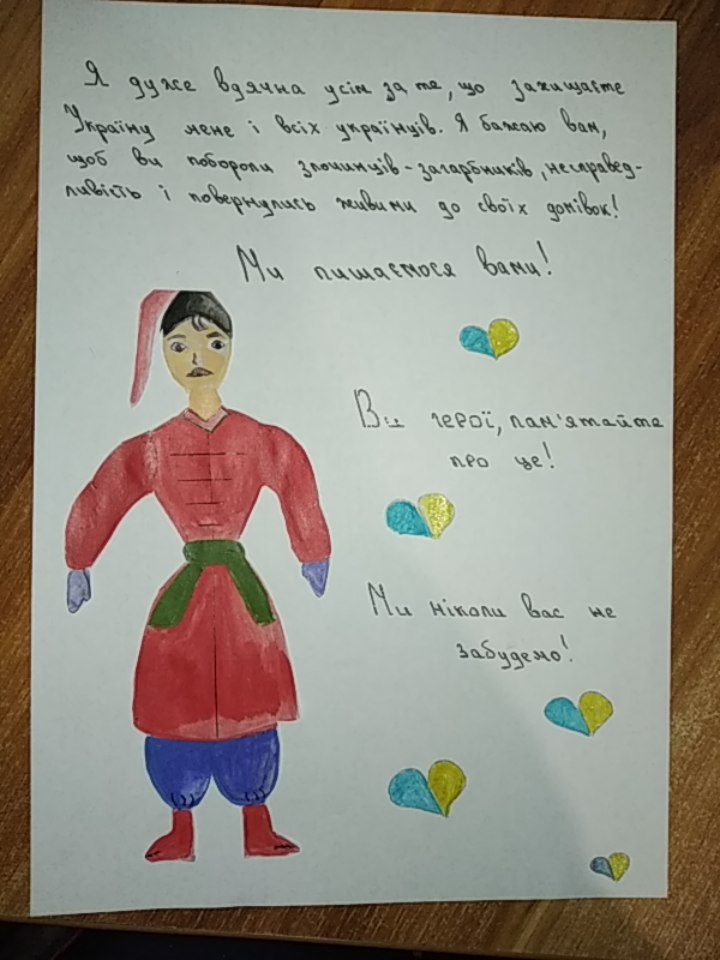 Я дуже вдячна усім за те, що захищаєте
Україну мене і всіх українців. Я бажаю вам,
щоб ви побороли злочинців-загарбників, несправед-
ливість і повернулись живими до своїх домівок!
Ми пишаємося вами!
Ви герої, пам'ятайте
про це!
Ми ніколи вас не
забудемо!